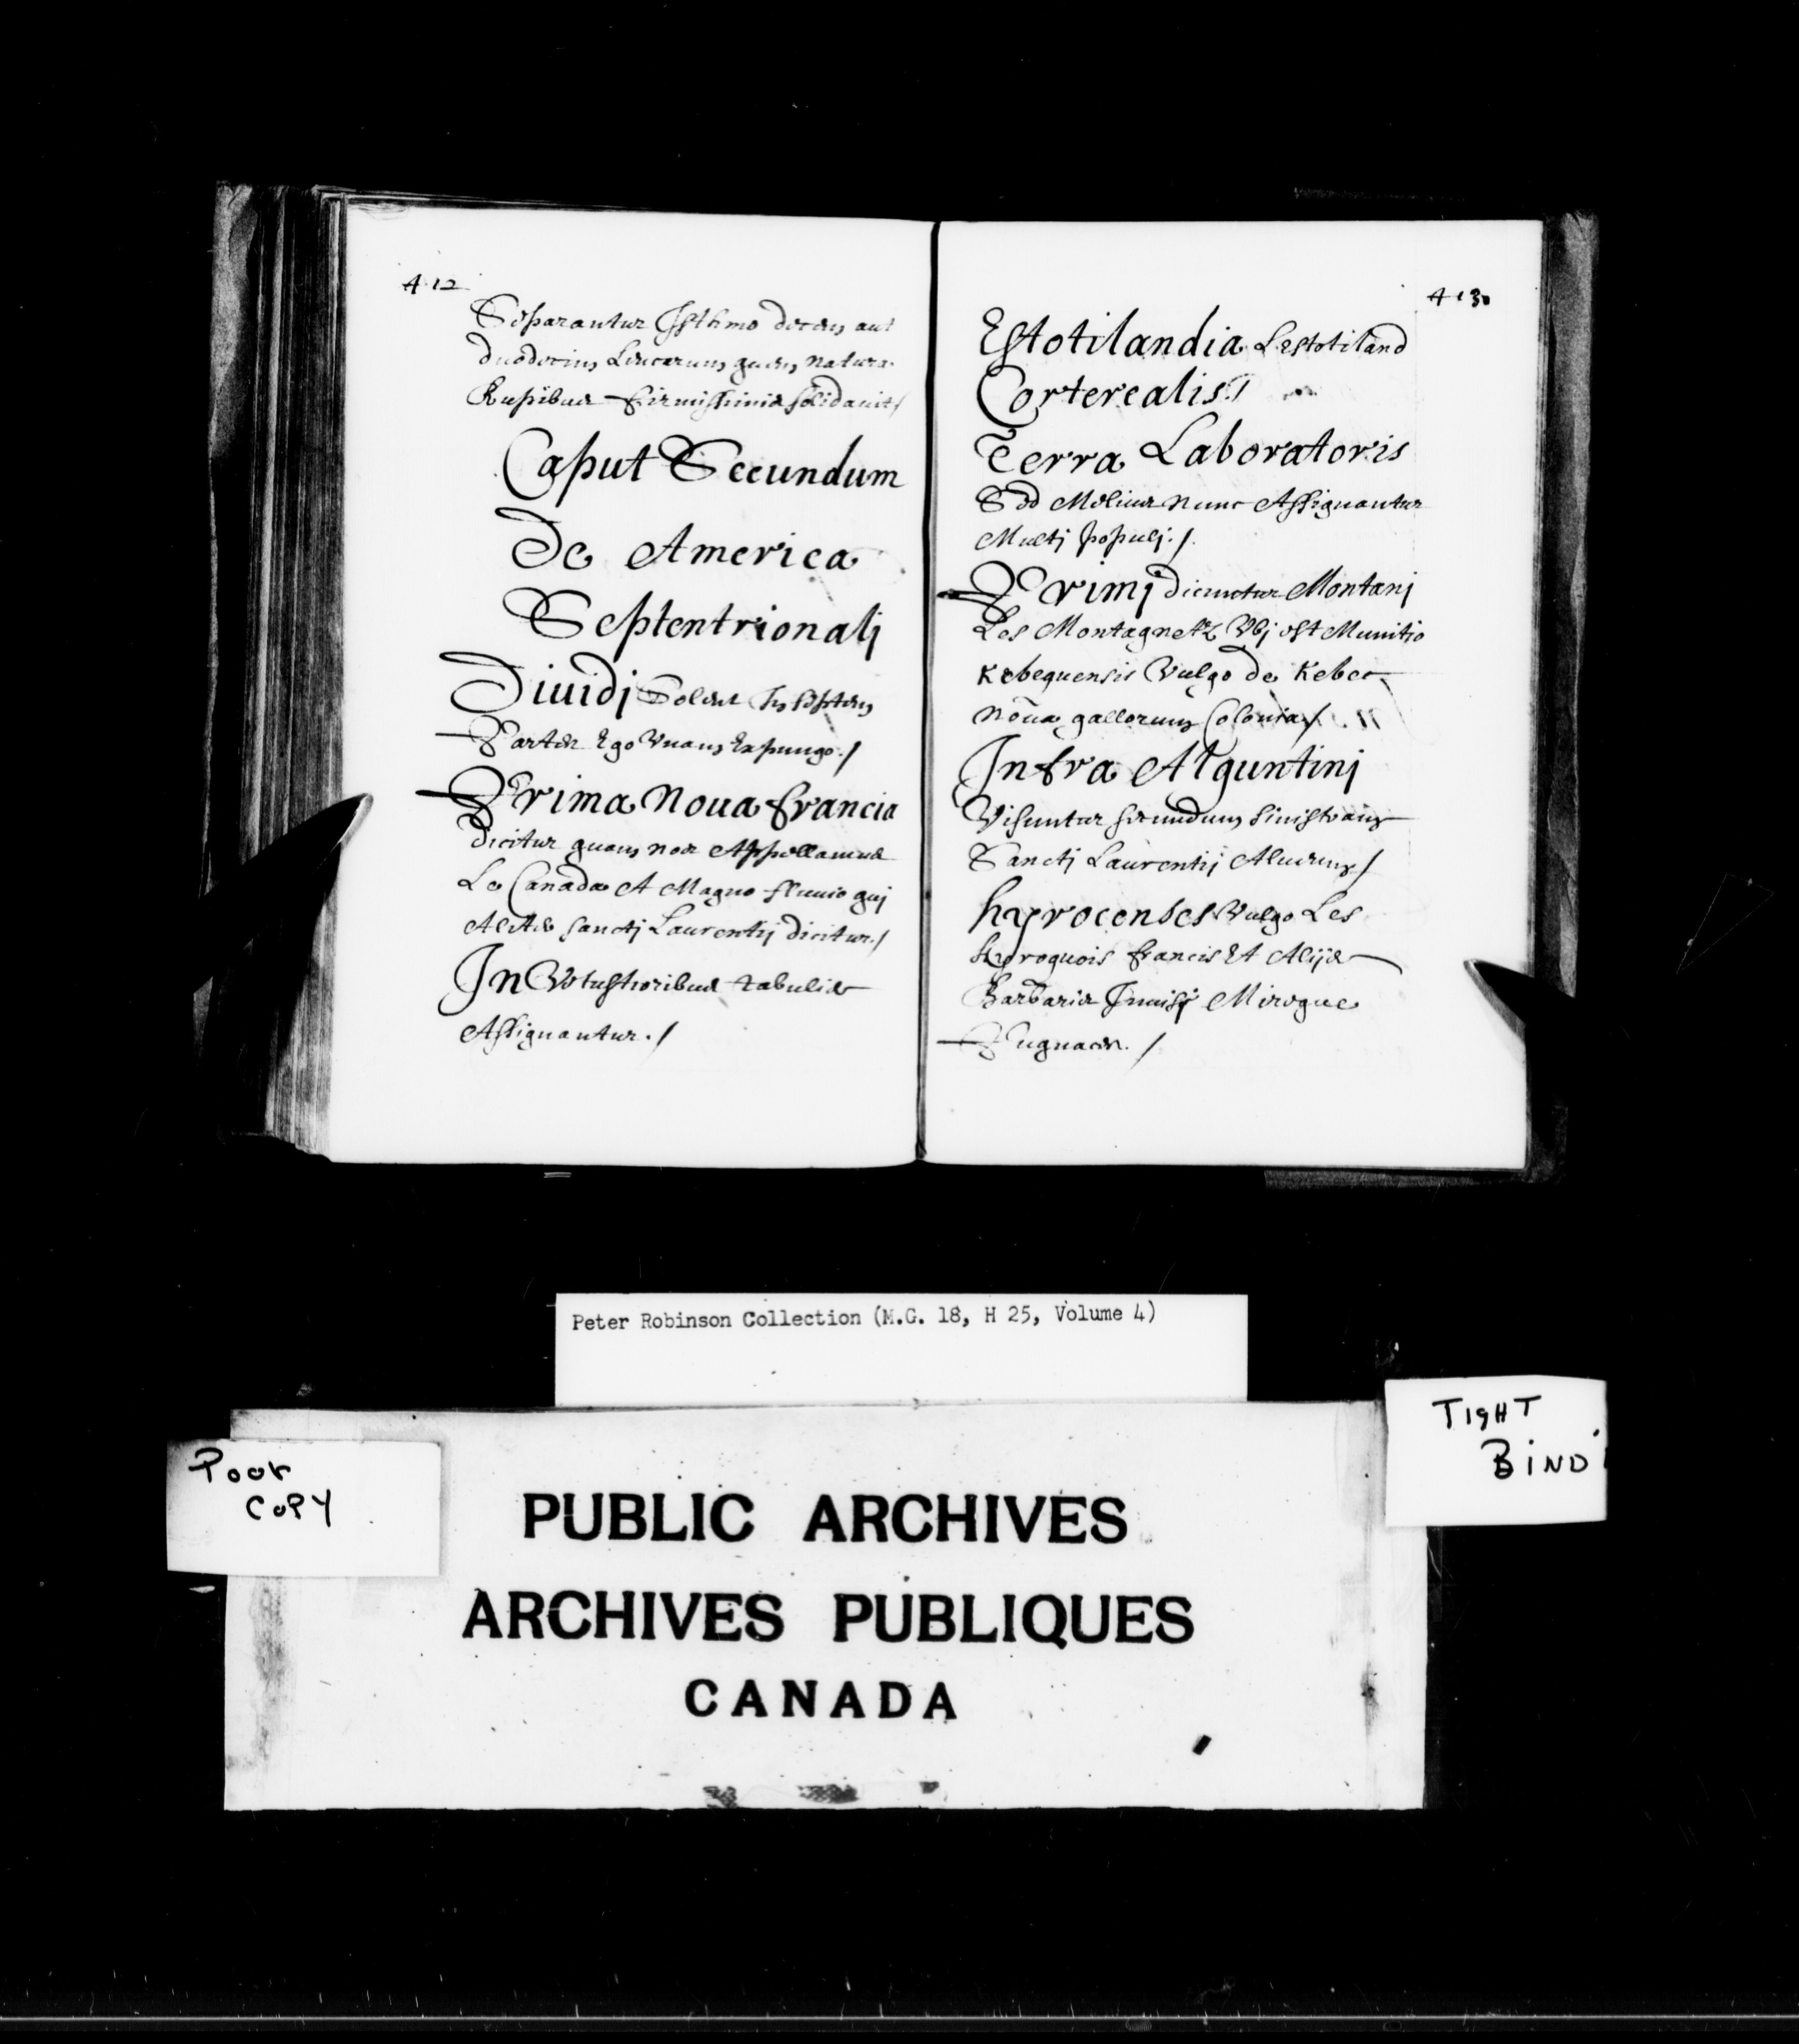 412
Separantur Isthmo decem aut
duodecim Leucarum quem natura
Rupibus firmissimis solidauit /
Caput Secundum
De America
Septentrionalj
Diuidj Solent In septem
Partes Ego Vnam Expungo. /
Prima Noua francia
dicitur quam nos Appellamus
Le Canada A Magno fluuio quj
Alias sanctj Laurentij dicitur. /
In Vetustioribus tabulis
Assignantur. /
4130
Estotilandia Lestotiland
Corterealis. /
Terra Laboratoris
Sed Melius nunc Assignantur
Multj populj. /
Primj dicuntur Montanj
Les Montagnetz Vbj est Munitio
Kebequensis Vulgo de Kebec
noua gallorum Colonia /
Infra Alguntinj
Visuntur secundum sinistram
Sanctj Laurentij Alueum /
hyrocenses Vulgo Les
hyroquois francis Et Alijs
Barbaris Inuisj Mireque
Pugnaces. /
Peter Robinson Collection (M.G. 18, H 25, Volume 4)
Poor
Copy
TigHT
BiND
PUBLIC ARCHIVES
ARCHIVES PUBLIQUES
CANADA